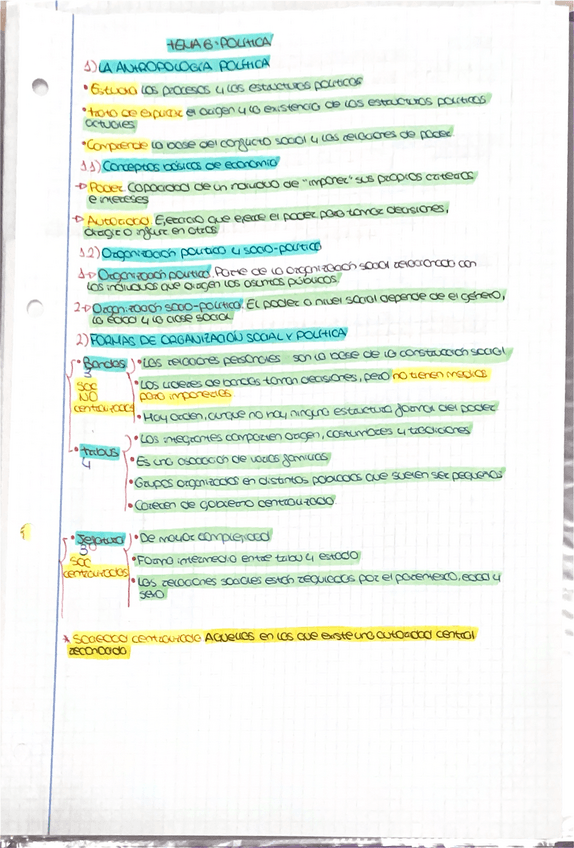 TEMA 6: POLÍTICA
1) LA ANTROPOLOGÍA POLÍTICA
• Estudia los procesos y las estructuras políticas
• trata de explicar el origen y la existencia de las estructuras políticas
actuales
• Comprende la base del conflicto social y las relaciones de poder.
1.1) Conceptos básicos de economía
→ Poder. Capacidad de un individuo de "imponer" sus propios criterios
e intereses
→ Autoridad. Ejercicio que ejerce el poder para tomar decisiones,
dirigir o influir en otros
1.2) Organización política y socio-política
1→ Organización política. Parte de la organización social relacionada con
los individuos que dirigen los asuntos públicos.
2→ Organización socio-política. El poder a nivel social depende de el género,
la edad y la clase social
2) FORMAS DE ORGANIZACIÓN SOCIAL Y POLÍTICA
• Bandas • Las relaciones personales son la base de la construcción social
• Los líderes de bandas toman decisiones, pero no tienen medios
para imponerlas
SOC
NO
centralizadas
• Hay orden, aunque no hay ninguna estructura formal del poder
• Los integrantes comparten origen, costumbres y tradiciones
• tribus
• Es una asociación de varias familias
• Grupos organizados en distintos poblados que suelen ser pequeños
• Carecen de gobierno centralizado.
• Jefatura • De mayor complejidad
SOC
centralizadas
• Forma intermedia entre tribu y estado
• Las relaciones sociales están reguladas por el parentesco, edad y
sexo
* Sociedad centralizada Aquellas en las que existe una autoridad central
reconocida